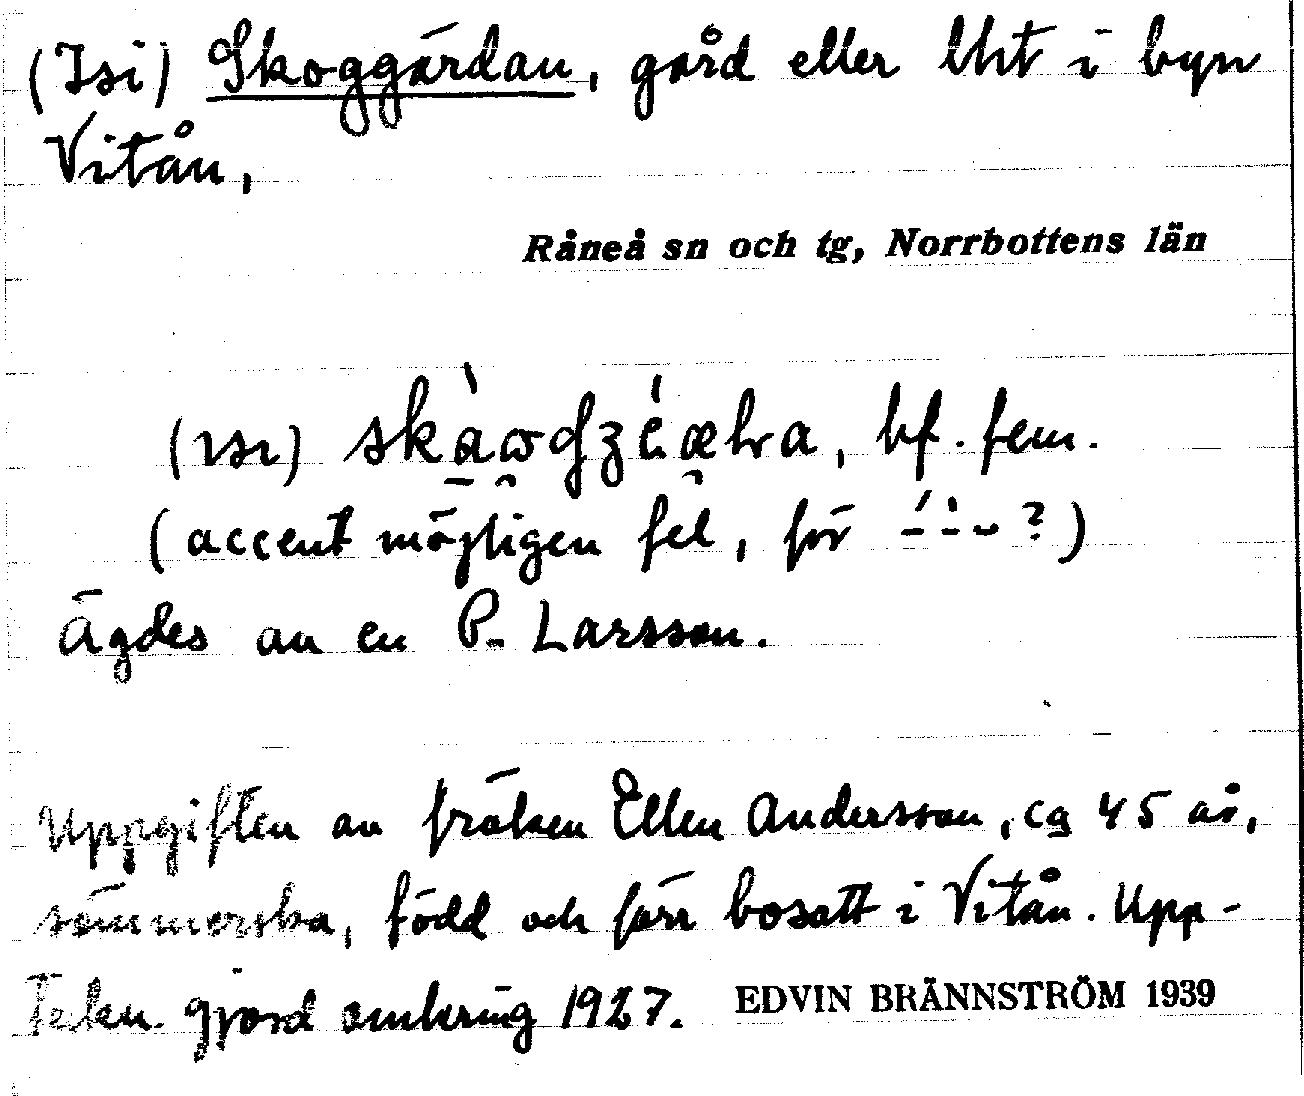 (Isi) Skoggärdan, gård eller lht i byn
Vitån,
Råneå sn och tg, Norrbottens län
, bf. fem.
(accent möjligen fel, för ?)
Ägdes av en P. Larsson.
Uppgiften av fröken Ellen Andersson, ca 45 år,
sömmerska, född och förr bosatt i Vitån. Upp-
tekn. gjord omkring 1927. EDVIN BRÄNNSTRÖM 1939